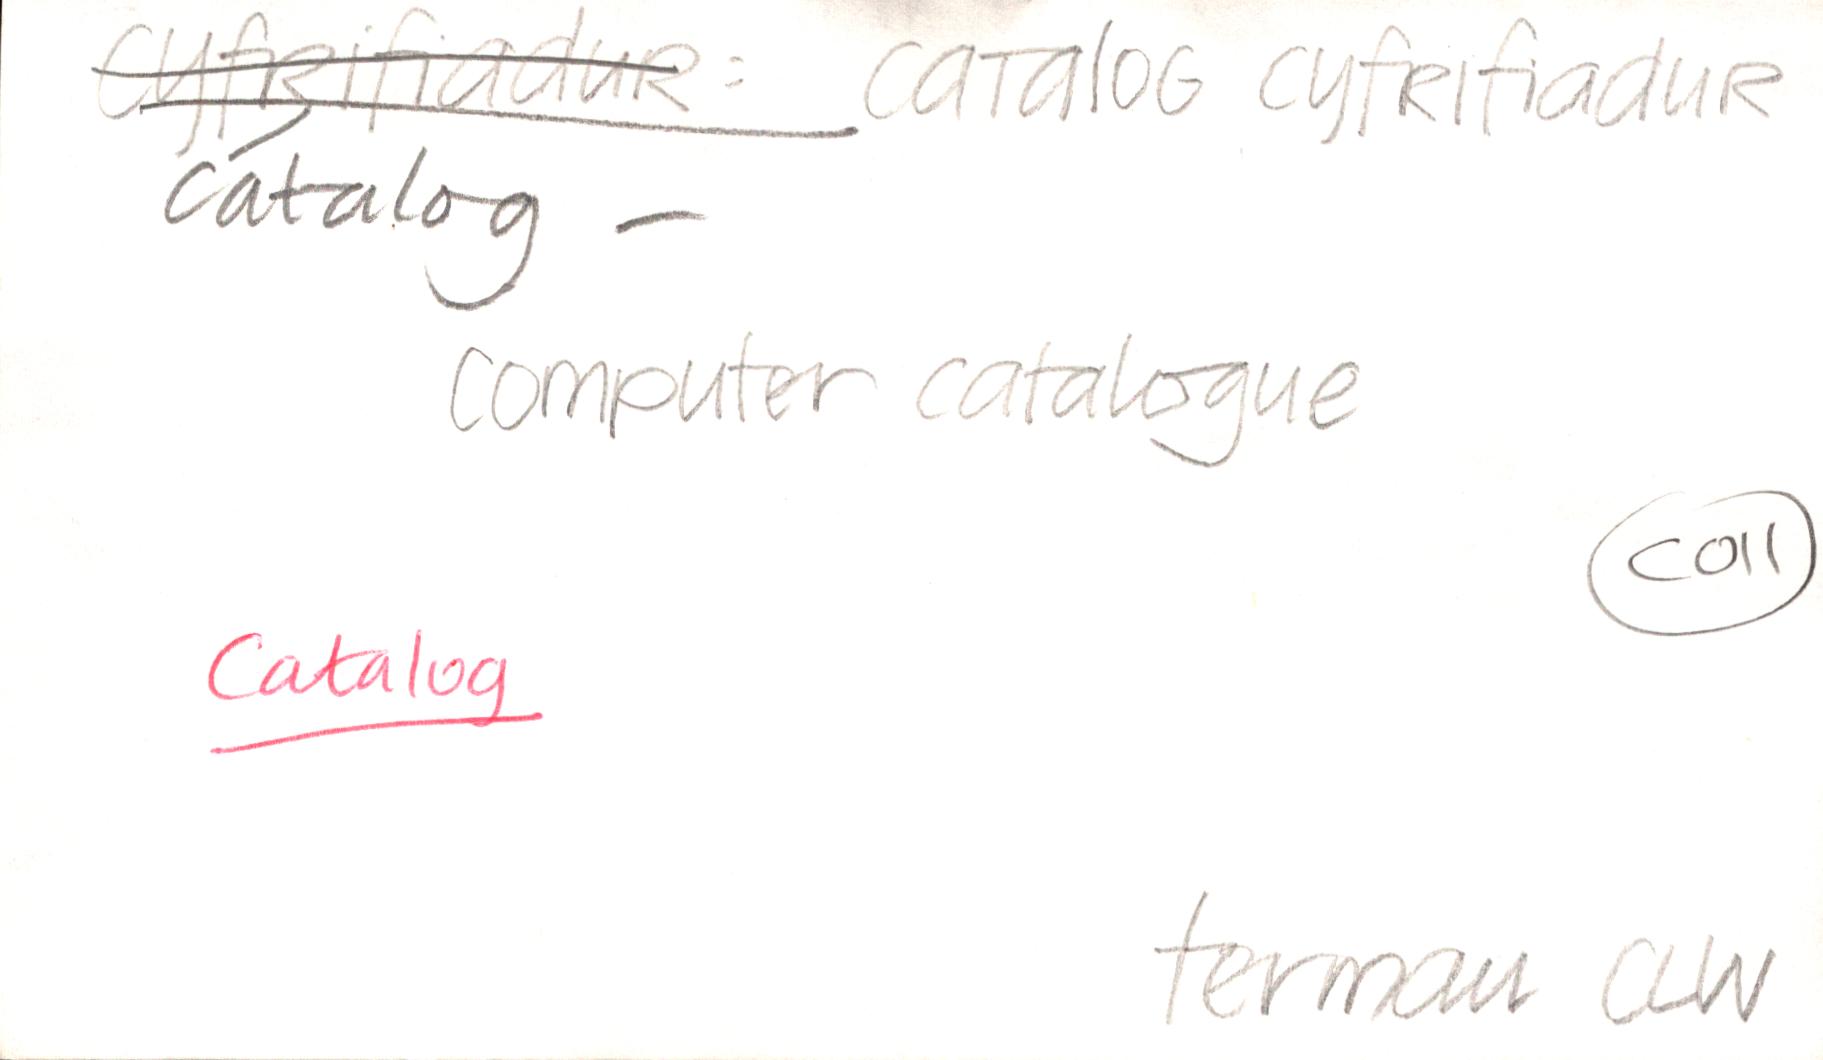 cyfrifiadur: catalog cyfrifiadur
catalog -
computer catalogue
coll
Catalog
termau CLlW